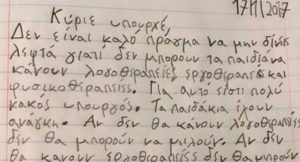 17/11/2017
Κύριε υπουργέ,
Δεν είναι καλό πράγμα να μην δίνεις
λεφτά γιατί δεν μπορούν τα παιδιά να
κάνουν λογοθεραπείες, εργοθεραπείες και
φυσικοθεραπείες. Για αυτό είστε πολύ
κακός υπουργός. Τα παιδάκια έχουν
ανάγκη. Αν δεν θα κάνουν λογοθεραπείες
δεν θα μπορούν να μιλούν. Αν δεν
θα κάνουν εργοθεραπείες δεν θα μπορούν